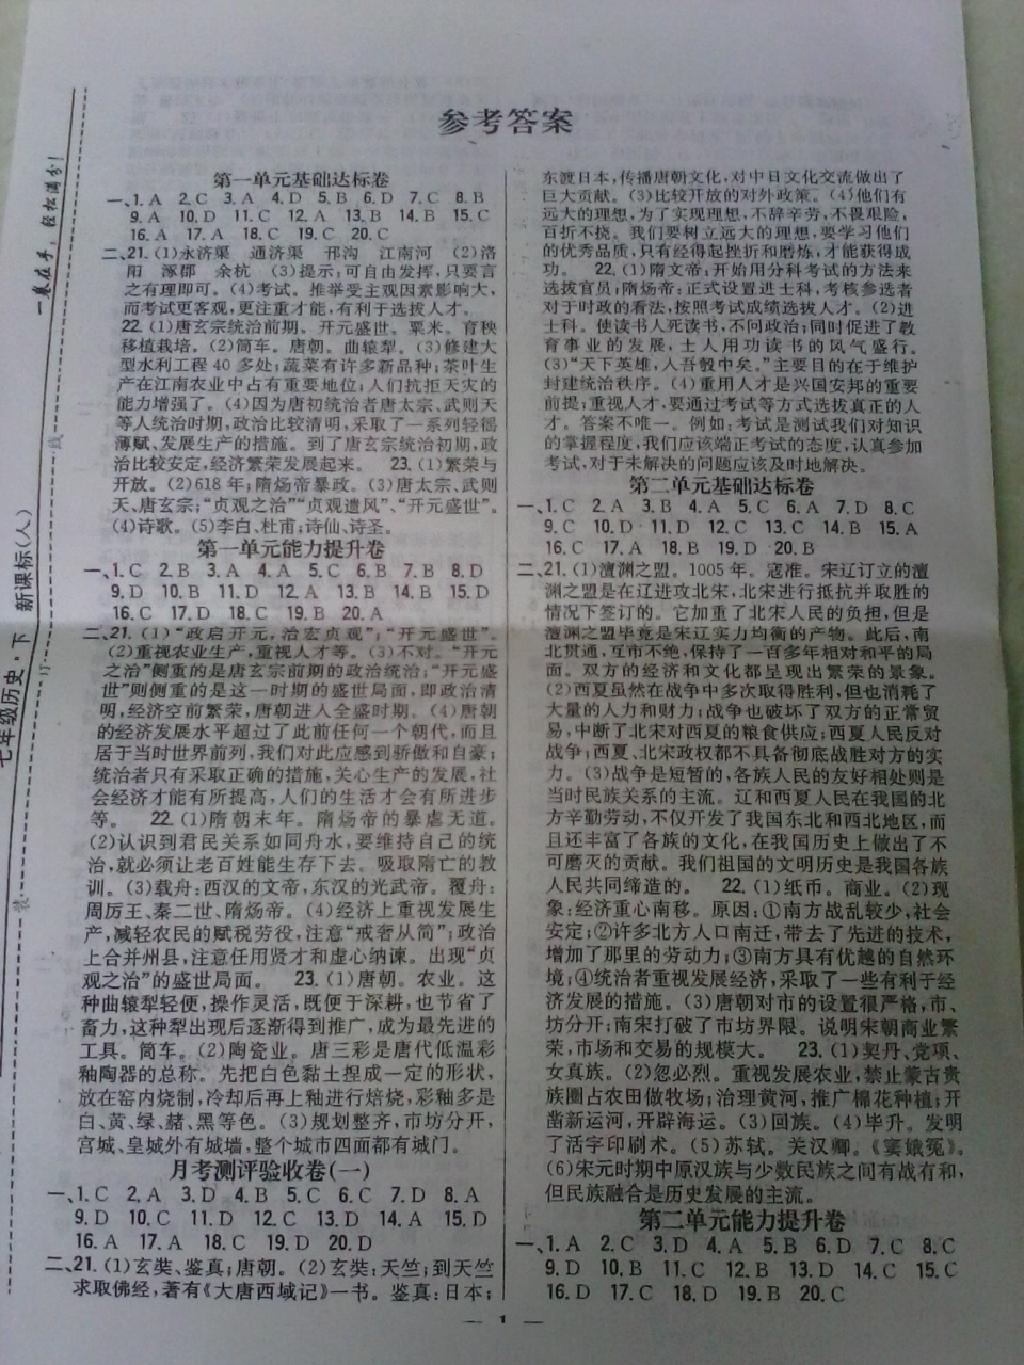 参考答案
第一单元基础达标卷
一、1. A 2. C 3. A 4. D 5. B 6. D 7. C 8. B
9. A 10. D 11. C 12. A 13. B 14. B 15. C
16. A 17. A 18. C 19. C 20. C
二、21. (1)永济渠 通济渠 邗沟 江南河 (2)洛
阳 涿郡 余杭 (3)提示:可自由发挥,只要言
之有理即可。(4)考试。推举受主观因素影响大,
而考试更客观,更注重才能,有利于选拔人才。
22. (1)唐玄宗统治前期。开元盛世。粟米。育秧
移植栽培。(2)筒车。唐朝。曲辕犁。(3)修建大
型水利工程 40 多处;蔬菜有许多新品种;茶叶生
产在江南农业中占有重要地位;人们抗拒天灾的
能力增强了。(4)因为唐初统治者唐太宗、武则天
等人统治时期,政治比较清明,采取了一系列轻徭
薄赋、发展生产的措施。到了唐玄宗统治初期,政
治比较安定,经济繁荣发展起来。 23. (1)繁荣与
开放。(2)618 年;隋炀帝暴政。(3)唐太宗、武则
天、唐玄宗;“贞观之治”“贞观遗风”、“开元盛世”。
(4)诗歌。(5)李白、杜甫;诗仙、诗圣。
第一单元能力提升卷
一、1. C 2. B 3. A 4. A 5. C 6. B 7. B 8. D
9. D 10. B 11. D 12. A 13. B 14. B 15. D
16. C 17. D 18. C 19. B 20. A
二、21. (1)“政启开元,治宏贞观”;“开元盛世”。
(2)重视农业生产,重视人才等。(3)不对。“开元
之治”侧重的是唐玄宗前期的政治统治;“开元盛
世”则侧重的是这一时期的盛世局面,即政治清
明,经济空前繁荣,唐朝进入全盛时期。(4)唐朝
的经济发展水平超过了此前任何一个朝代,而且
居于当时世界前列,我们对此应感到骄傲和自豪;
统治者只有采取正确的措施,关心生产的发展,社
会经济才能有所提高,人们的生活才会有所进步
等。 22. (1)隋朝末年。隋炀帝的暴虐无道。
(2)认识到君民关系如同舟水,要维持自己的统
治,就必须让老百姓能生存下去。吸取隋亡的教
训。(3)载舟:西汉的文帝,东汉的光武帝。覆舟:
周厉王、秦二世、隋炀帝。(4)经济上重视发展生
产,减轻农民的赋税劳役,注意“戒奢从简”;政治
上合并州县,注意任用贤才和虚心纳谏。出现“贞
观之治”的盛世局面。 23. (1)唐朝。农业。这
种曲辕犁轻便,操作灵活,既便于深耕,也节省了
畜力,这种犁出现后逐渐得到推广,成为最先进的
工具。筒车。(2)陶瓷业。唐三彩是唐代低温彩
釉陶器的总称。先把白色黏土捏成一定的形状,
放在窑内烧制,冷却后再上釉进行焙烧,彩釉多是
白、黄、绿、赭、黑等色。(3)规划整齐,市坊分开,
宫城、皇城外有城墙,整个城市四面都有城门。
月考测评验收卷(一)
一、1. C 2. A 3. D 4. B 5. C 6. C 7. D 8. A
9. D 10. C 11. D 12. C 13. D 14. A 15. D
16. A 17. A 18. C 19. D 20. D
二、21. (1)玄奘、鉴真;唐朝。(2)玄奘:天竺;到天竺
求取佛经,著有《大唐西域记》一书。鉴真:日本;
东渡日本,传播唐朝文化,对中日文化交流做出了
巨大贡献。(3)比较开放的对外政策。(4)他们有
远大的理想,为了实现理想,不辞辛劳,不畏艰险,
百折不挠。我们要树立远大的理想,要学习他们
的优秀品质,只有经得起挫折和磨炼,才能获得成
功。 22. (1)隋文帝:开始用分科考试的方法来
选拔官员;隋炀帝:正式设置进士科,考核参选者
对于时政的看法,按照考试成绩选拔人才。(2)进
士科。使读书人死读书,不问政治;同时促进了教
育事业的发展,士人用功读书的风气盛行。
(3)“天下英雄,入吾彀中矣。”主要目的在于维护
封建统治秩序。(4)重用人才是兴国安邦的重要
前提;重视人才,要通过考试等方式选拔真正的人
才。答案不唯一。例如:考试是测试我们对知识
的掌握程度,我们应该端正考试的态度,认真参加
考试,对于未解决的问题应该及时地解决。
第二单元基础达标卷
一、1. C 2. A 3. B 4. A 5. C 6. A 7. D 8. C
9. C 10. D 11. D 12. C 13. C 14. B 15. A
16. C 17. A 18. B 19. D 20. B
二、21. (1)澶渊之盟。1005 年。寇准。宋辽订立的澶
渊之盟是在辽进攻北宋,北宋进行抵抗并取胜的
情况下签订的。它加重了北宋人民的负担,但是
澶渊之盟毕竟是宋辽实力均衡的产物。此后,南
北贯通,互市不绝,保持了一百多年相对和平的局
面。双方的经济和文化都呈现出繁荣的景象。
(2)西夏虽然在战争中多次取得胜利,但也消耗了
大量的人力和财力;战争也破坏了双方的正常贸
易,中断了北宋对西夏的粮食供应;西夏人民反对
战争;西夏、北宋政权都不具备彻底战胜对方的实
力。(3)战争是短暂的,各族人民的友好相处则是
当时民族关系的主流。辽和西夏人民在我国的北
方辛勤劳动,不仅开发了我国东北和西北地区,而
且还丰富了各族的文化,在我国历史上做出了不
可磨灭的贡献。我们祖国的文明历史是我国各族
人民共同缔造的。 22. (1)纸币。商业。(2)现
象:经济重心南移。原因:①南方战乱较少,社会
安定;②许多北方人口南迁,带去了先进的技术,
增加了那里的劳动力;③南方具有优越的自然环
境;④统治者重视发展经济,采取了一些有利于经
济发展的措施。(3)唐朝对市的设置很严格,市、
坊分开;南宋打破了市坊界限。说明宋朝商业繁
荣,市场和交易的规模大。 23. (1)契丹、党项、
女真族。(2)忽必烈。重视发展农业,禁止蒙古贵
族圈占农田做牧场;治理黄河,推广棉花种植;开
凿新运河,开辟海运。(3)回族。(4)毕升。发明
了活字印刷术。(5)苏轼。关汉卿。《窦娥冤》。
(6)宋元时期中原汉族与少数民族之间有战有和,
但民族融合是历史发展的主流。
第二单元能力提升卷
一、1. A 2. C 3. D 4. A 5. B 6. D 7. C 8. C
9. D 10. B 11. C 12. B 13. D 14. C 15. C
16. D 17. C 18. D 19. B 20. C
— 1 —
一卷在手,轻松满分!
七年级历史·下 新课标(人)